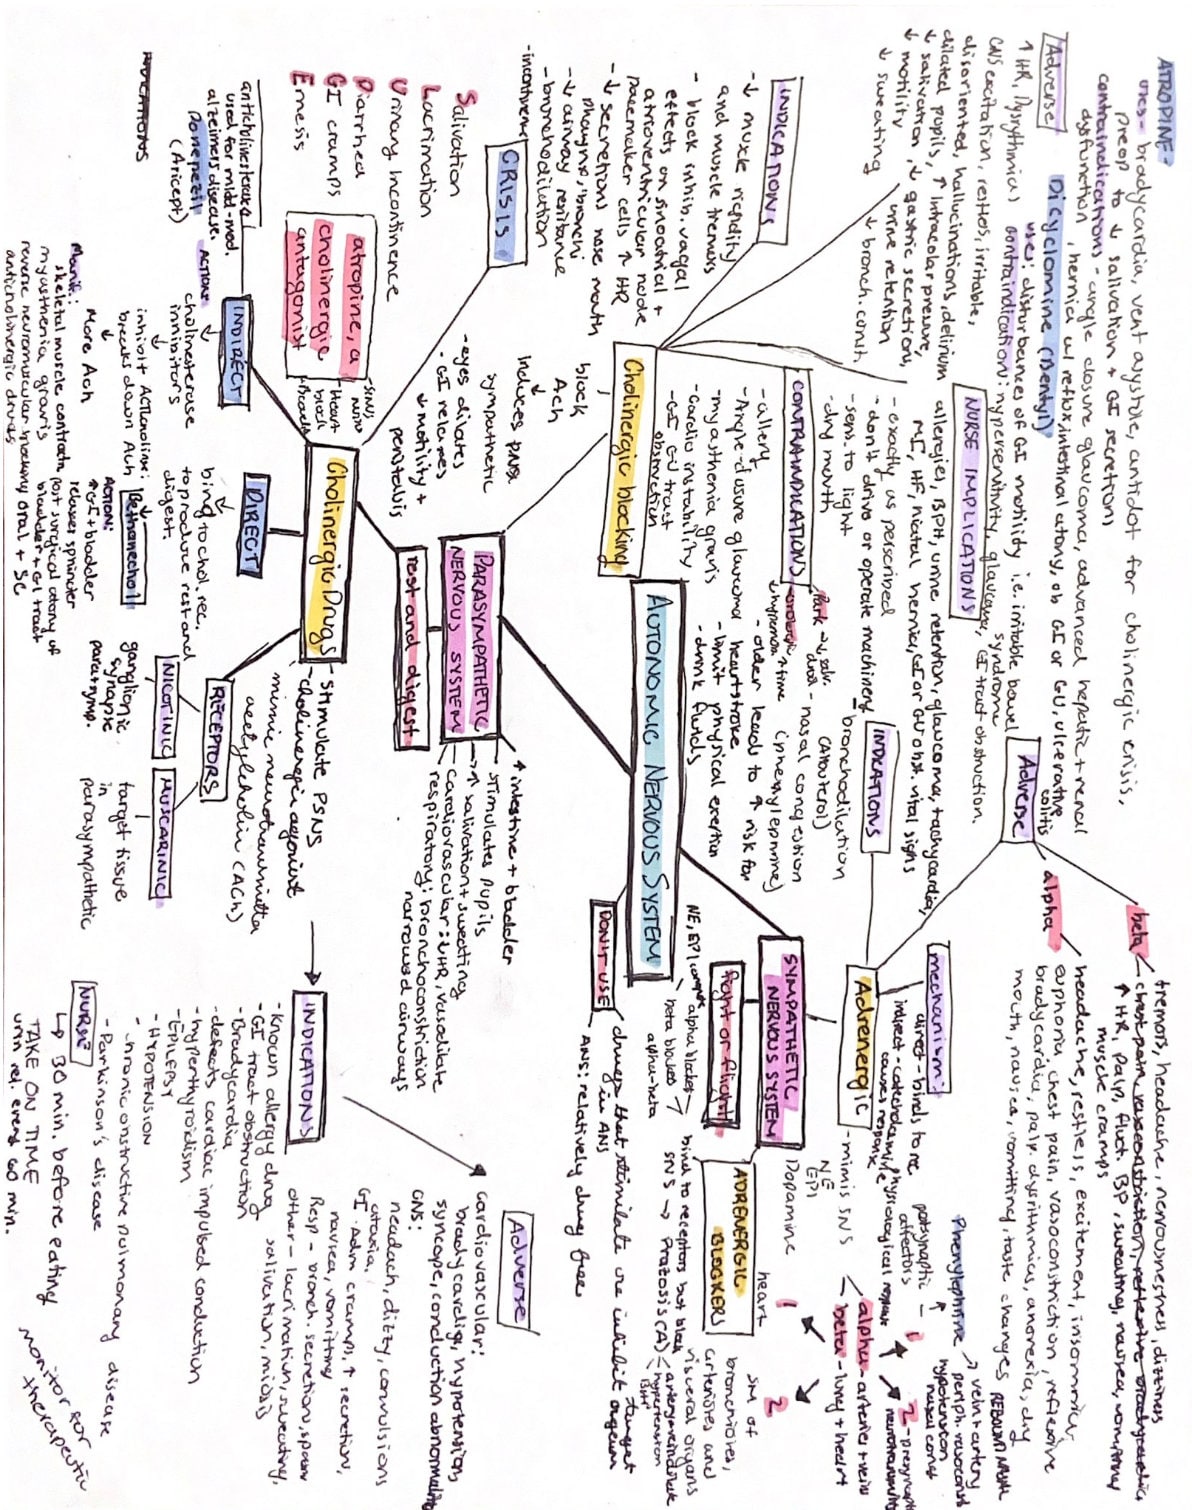 ATROPINE -
uses - bradycardia, vent asystole, antidot for cholinergic crisis,
preop to ↓ salivation + GI secretions
contraindications - angle closure glaucoma, advanced hepatic + renal
dysfunction, hernia w/ reflux, intestinal atony, ob GI or GU, ulcerative
colitis
Adverse
↑ HR, Dysrythmics
CNS excitation, restles, irritable,
disoriented, hallucinations, delirium
dilated pupils, ↑ intraocular pressure,
↓ salivation, ↓ gastric secretions,
↓ motility ↓ urine retention
↓ sweating ↓ bronch. consth
Dicyclomine (Bentyl)
uses: disturbences of GI motility i.e. irritable bowel
syndrome
contraindications: hypersensitivity, glaucoma, GI tract obstruction.
NURSE IMPLICATIONS
allergies, BPH, urine retention, glaucoma, tachycardia,
MI, HF, hiatal hernia, GI or GU obst. vital signs
- exactly as perscribed
- don't drive or operate machinery
- sens. to light
- dry mouth
INDICATIONS
- ↓ muscle rigidity
and muscle tremors
- block inhib. vagal
effects on sinoatrial +
atrioventricular node
pacemaker cells ↑ HR
- ↓ secretions nose mouth
pharynx, bronchi
- ↓ airway resistance
- bronchodilation
- incontinence
CONTRAINDICATIONS
- allergy
- Angle-closure glaucoma
- myasthenia gravis
- Cardio instability
- GI GU tract
obstruction
- older leads to ↑ risk for
heart stroke
- limit physical exertion
- drink fluids
Cholinergic blocking
block
Ach
↓
Induces PNS
sympathetic
- eyes dilates
- GI relaxes
↓ motility +
peristalsis
CRISIS
Salivation
Lacrimation
Urinary Incontinence
Diarrhea
GI cramps
Emesis
atropine, a
cholinergic
antagonist
AUTONOMIC NERVOUS SYSTEM
PARASYMPATHETIC
NERVOUS SYSTEM
rest and digest
↑ intestine + bladder
stimulates pupils
↑ salivation + sweating
cardiovascular: ↓ HR, vasodilate
respiratory: bronchoconstriction
narrowed airways
Cholinergic Drugs
- stimulate PSNS
- cholinergic agonist
mimic neurotransmitter
acetylcholin (ACh)
INDIRECT
anticholinesterase
used for mild-mod.
alzeimers disease.
Donepezil
(Aricept)
ACTION:
↓
cholinesterase
inhibitors
↓
inhibit ACTcholines:
breaks down Ach
↓
More Ach
skeletal muscle contracts,
myasthenia gravis
reverse neuromuscular blocking
anticholinergic drugs
DIRECT
↓
bind to chol. rec.
to produce rest and
digest.
↓
Bethanechol
ACTION:
↑ GI + bladder
relaxes sphincter
post surgical atony of
bladder + GI tract
oral + sc
RECEPTORS
NICOTINIC
ganglionic
synapse
parasymp.
MUSCARINIC
target tissue
in
parasympathetic
INDICATIONS
- Known allergy drug
- GI tract obstruction
- Bradycardia
- defects cardiac impulsed conduction
- hyperthyroidism
- EPILEPSY
- HYPOTENSION
- chronic obstructive pulmonary disease
- Parkinson's disease
NURSE
↳ 30 min. before eating
TAKE ON TIME
urin rel. every 60 min.
monitor for
therapeutic
Adverse
cardiovascular:
bradycardia, hypotension,
syncope, conduction abnormality
CNS:
headach, dizzy, convulsions
ataxia.
GI: Adm cramps, ↑ secretion,
nausea, vomitting
Resp - bronch. secretion, spasm
other - lacrimation, sweating,
salivation, miosis
INDICATIONS
- bronchodilution
(Albuterol)
- nasal congestion
(phenylephrine)
Adverse
beta
tremors, headache, nervousness, dizziness
↑ HR, palp, fluct. BP, sweating, nausea, vomiting
muscle cramps
alpha
headache, restless, excitement, insomnia,
euphoria, chest pain, vasoconstriction, reflexive
bradycardia, palp. dysrithmias, anorexia, dry
mouth, nausea, vomitting, taste changes REBOUND NASAL
mechanism:
direct - binds to rec
physiological response
indirect - catecholamine
causes response
Adrenergic
- mimis SNS
NE
EPI
Dopamine
alpha - arteries + veins
beta - lung + heart
1
heart
2
SM of
bronchioles,
arterioles and
visceral organs
Phenylephrine → vein + artery
periph. vasoconst
hypotension
nasal const
postsynaptic - 1
affectors
2 - presynaptic
SYMPATHETIC
NERVOUS SYSTEM
fight or flight
ADRENERGIC
BLOCKERS
bind to receptors but block
SNS → Prazosis (A)
hypertension
BPH
alpha blockers
beta blockers
alpha-beta
DON'T USE
drugs that stimulate or inhibit target
organ in ANS
ANS: relatively drug free